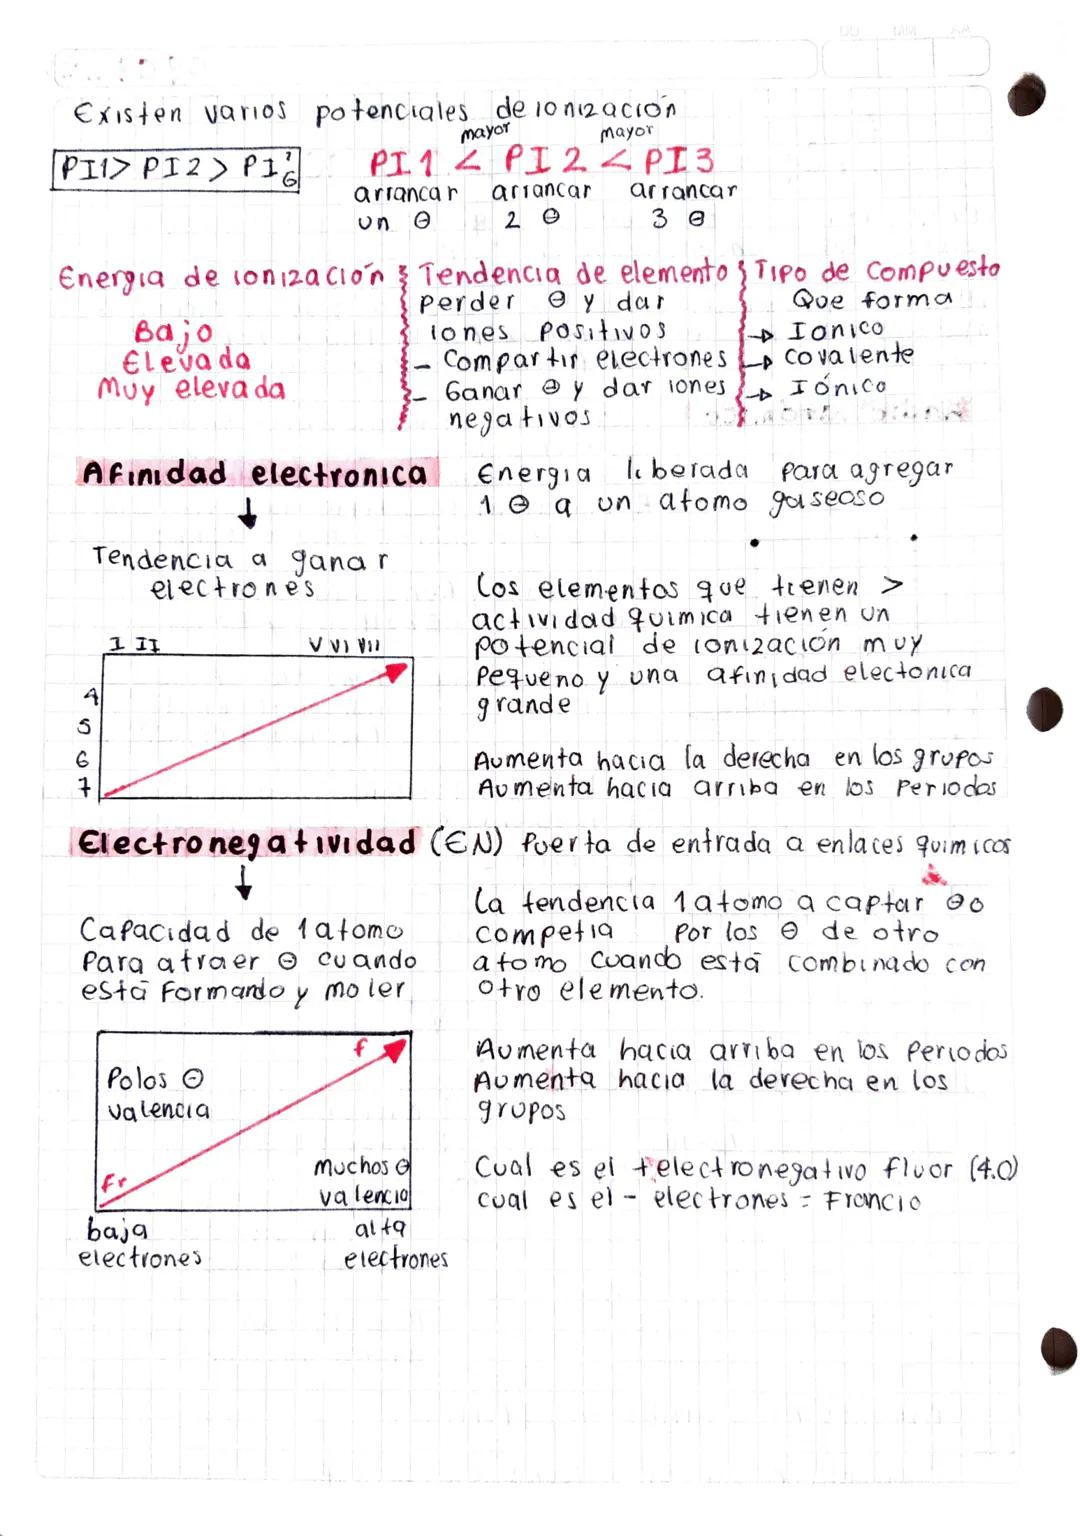 Existen varios potenciales de ionización
mayor mayor
PI1> PI2> PI PI1 < PI2 < PI3
arrancar arrancar arrancar
un ⊖ 2 ⊖ 3 ⊖
Energia de ionización Tendencia de elemento Tipo de compuesto
perder ⊖ y dar Que forma
Bajo iones positivos → Ionico
Elevada - Compartir electrones → covalente
Muy elevada - Ganar ⊖ y dar iones → Iónico
negativos
Afinidad electronica Energia liberada para agregar
↓ 1 ⊖ a un atomo gaseoso
Tendencia a ganar
electrones
Los elementos que tienen >
actividad quimica tienen un
potencial de ionización muy
pequeno y una afinidad electonica
grande
I II V VI VII
4
5
6
7
Aumenta hacia la derecha en los grupos
Aumenta hacia arriba en los Periodos
Electronegatividad (EN) Puerta de entrada a enlaces quimicos
↓
Capacidad de 1 atomo
Para atraer ⊖ cuando
está formando y moler
La tendencia 1 atomo a captar ⊖ o
competia por los ⊖ de otro
atomo cuando está combinado con
otro elemento.
f
Polos ⊖
valencia
Muchos ⊖
valencia
Fr
baja alta
electrones electrones
Aumenta hacia arriba en los Periodos
Aumenta hacia la derecha en los
grupos
Cual es el + electronegativo fluor (4.0)
cual es el - electrones = Francio